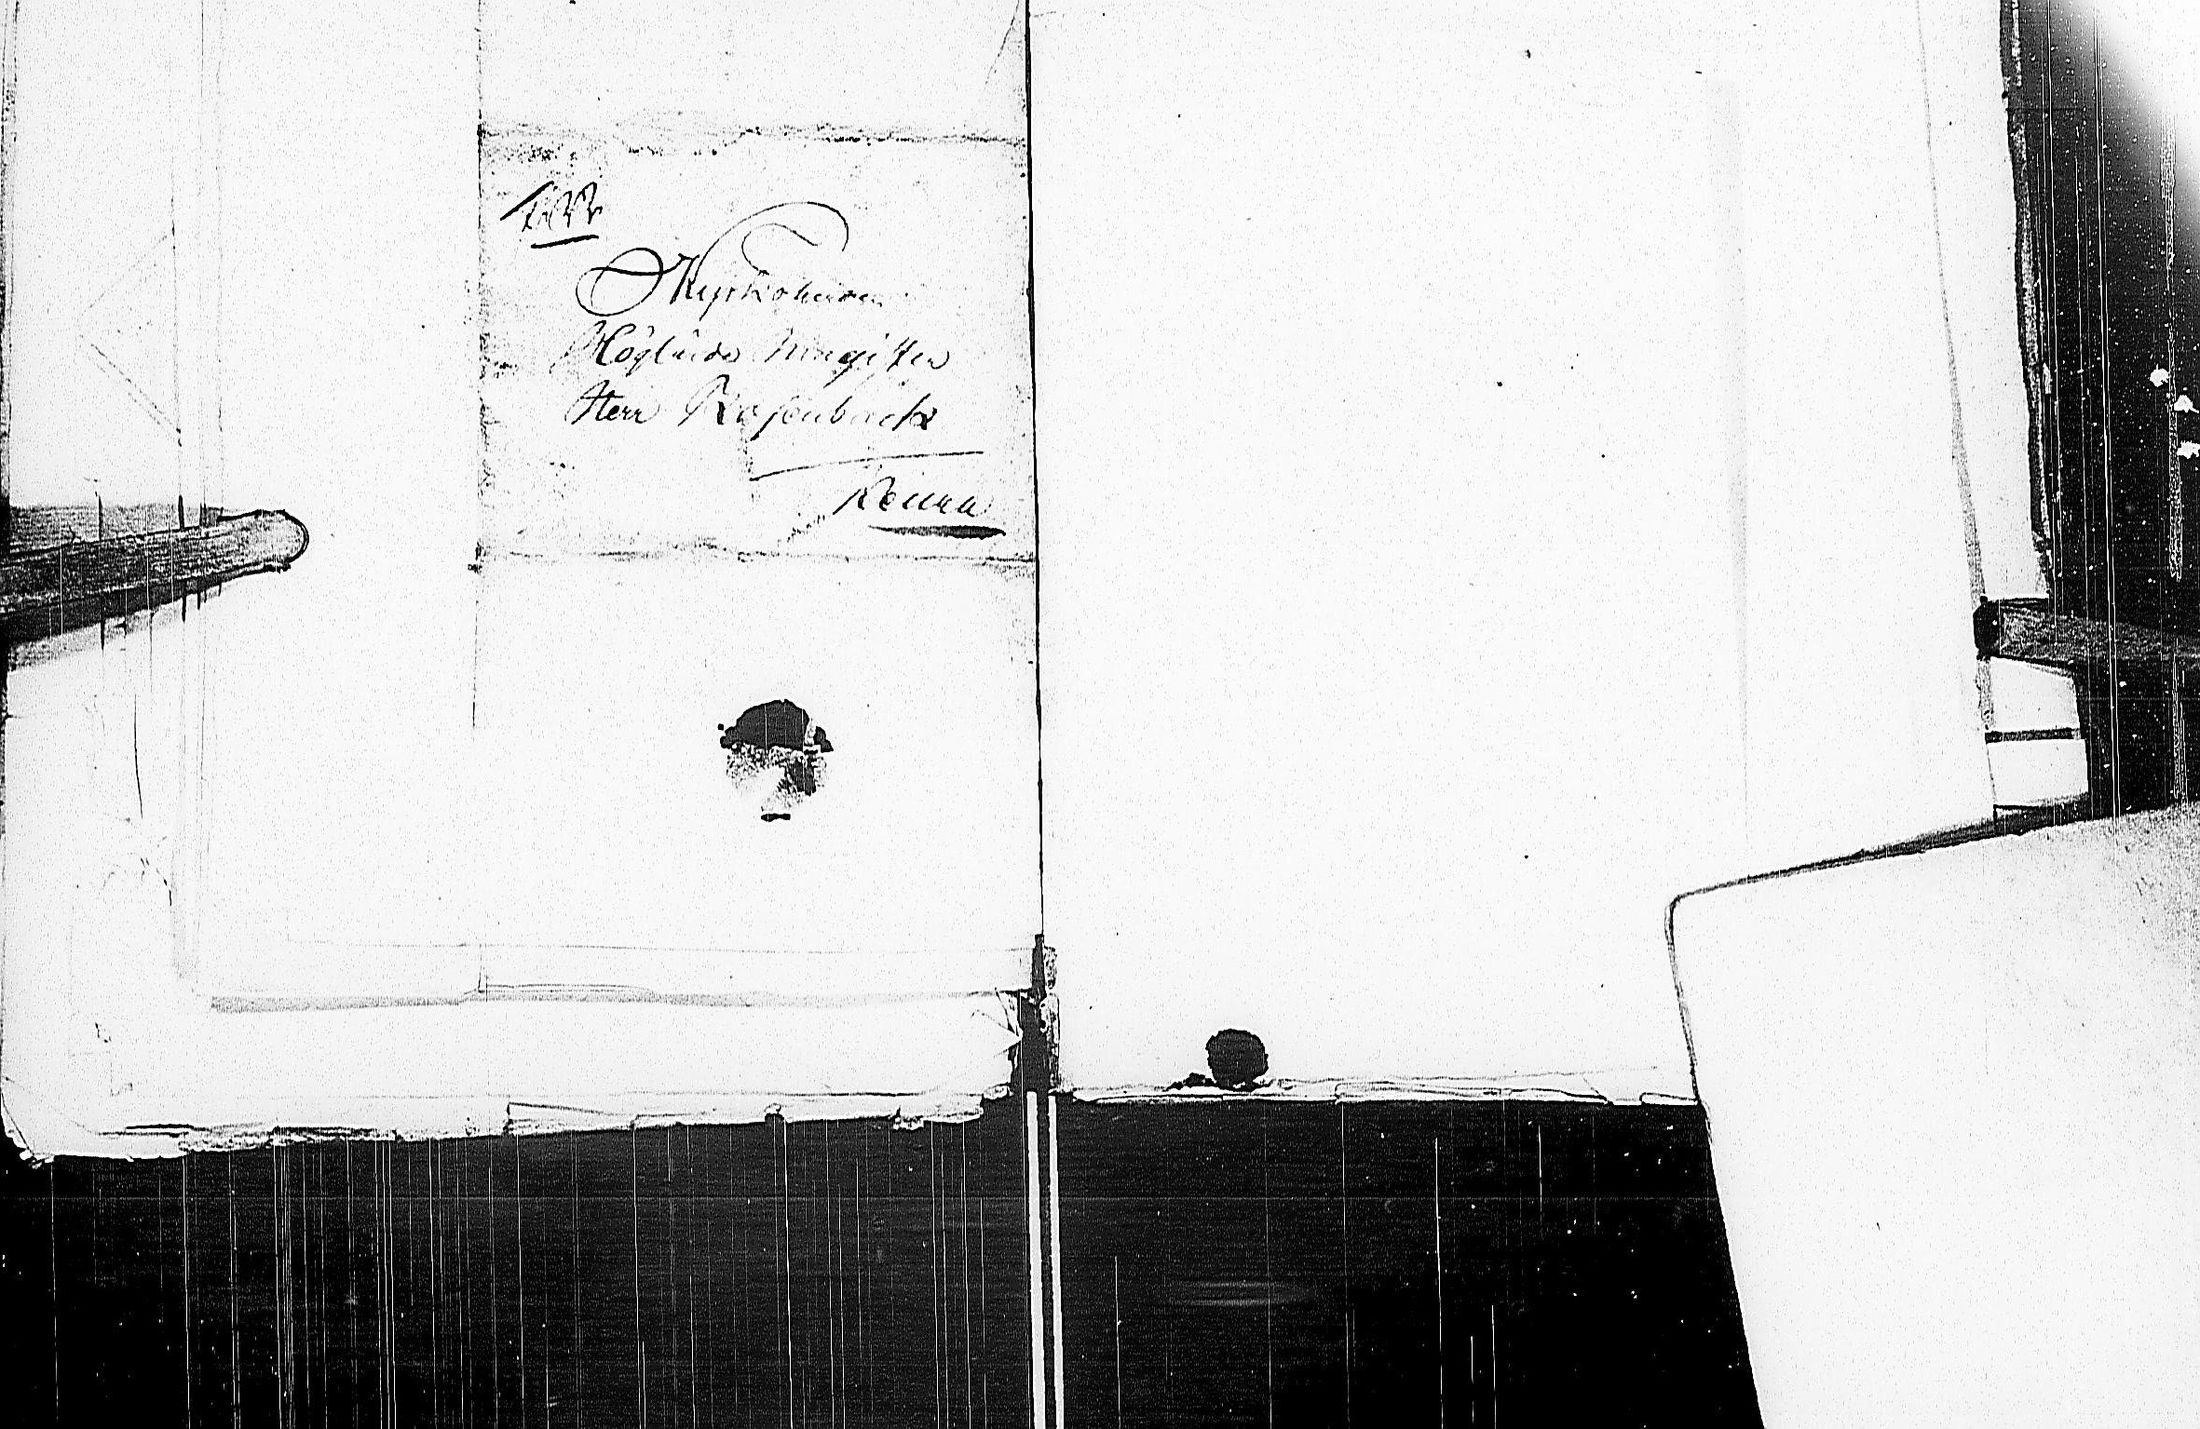 Kyrkoherden
Höglärde Magister
Herr Rosenback
Keuru